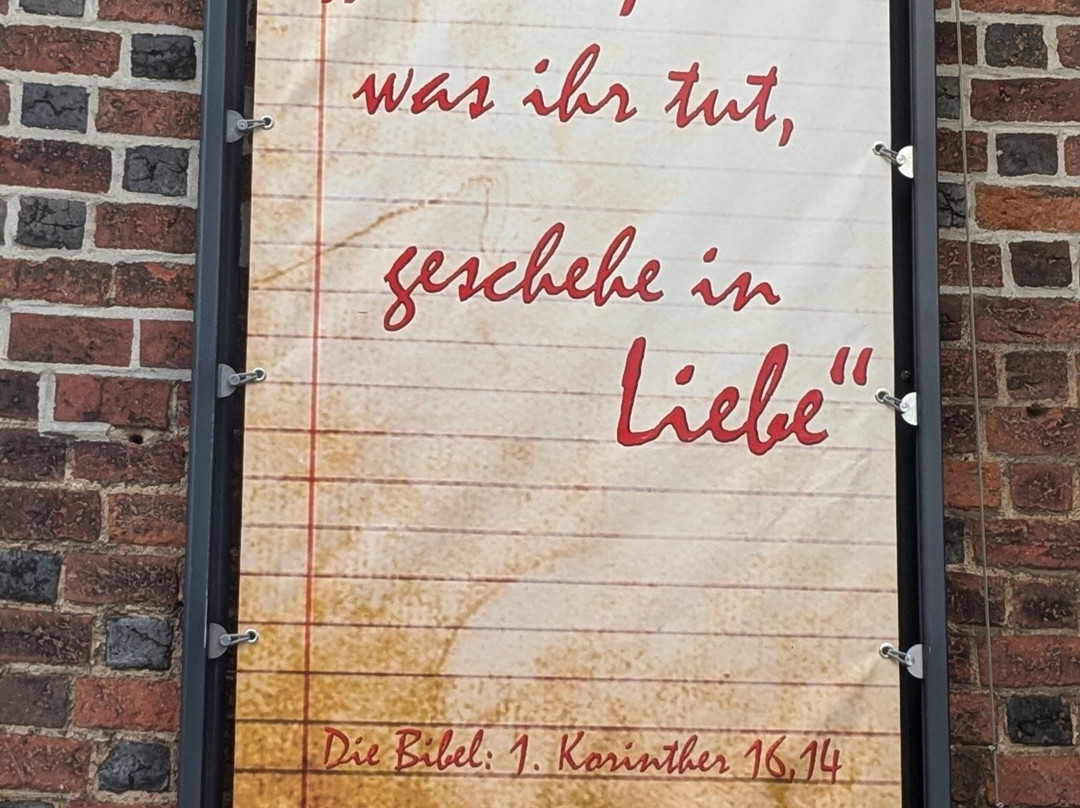 was ihr tut,
geschehe in
Liebe“
Die Bibel: 1. Korinther 16,14